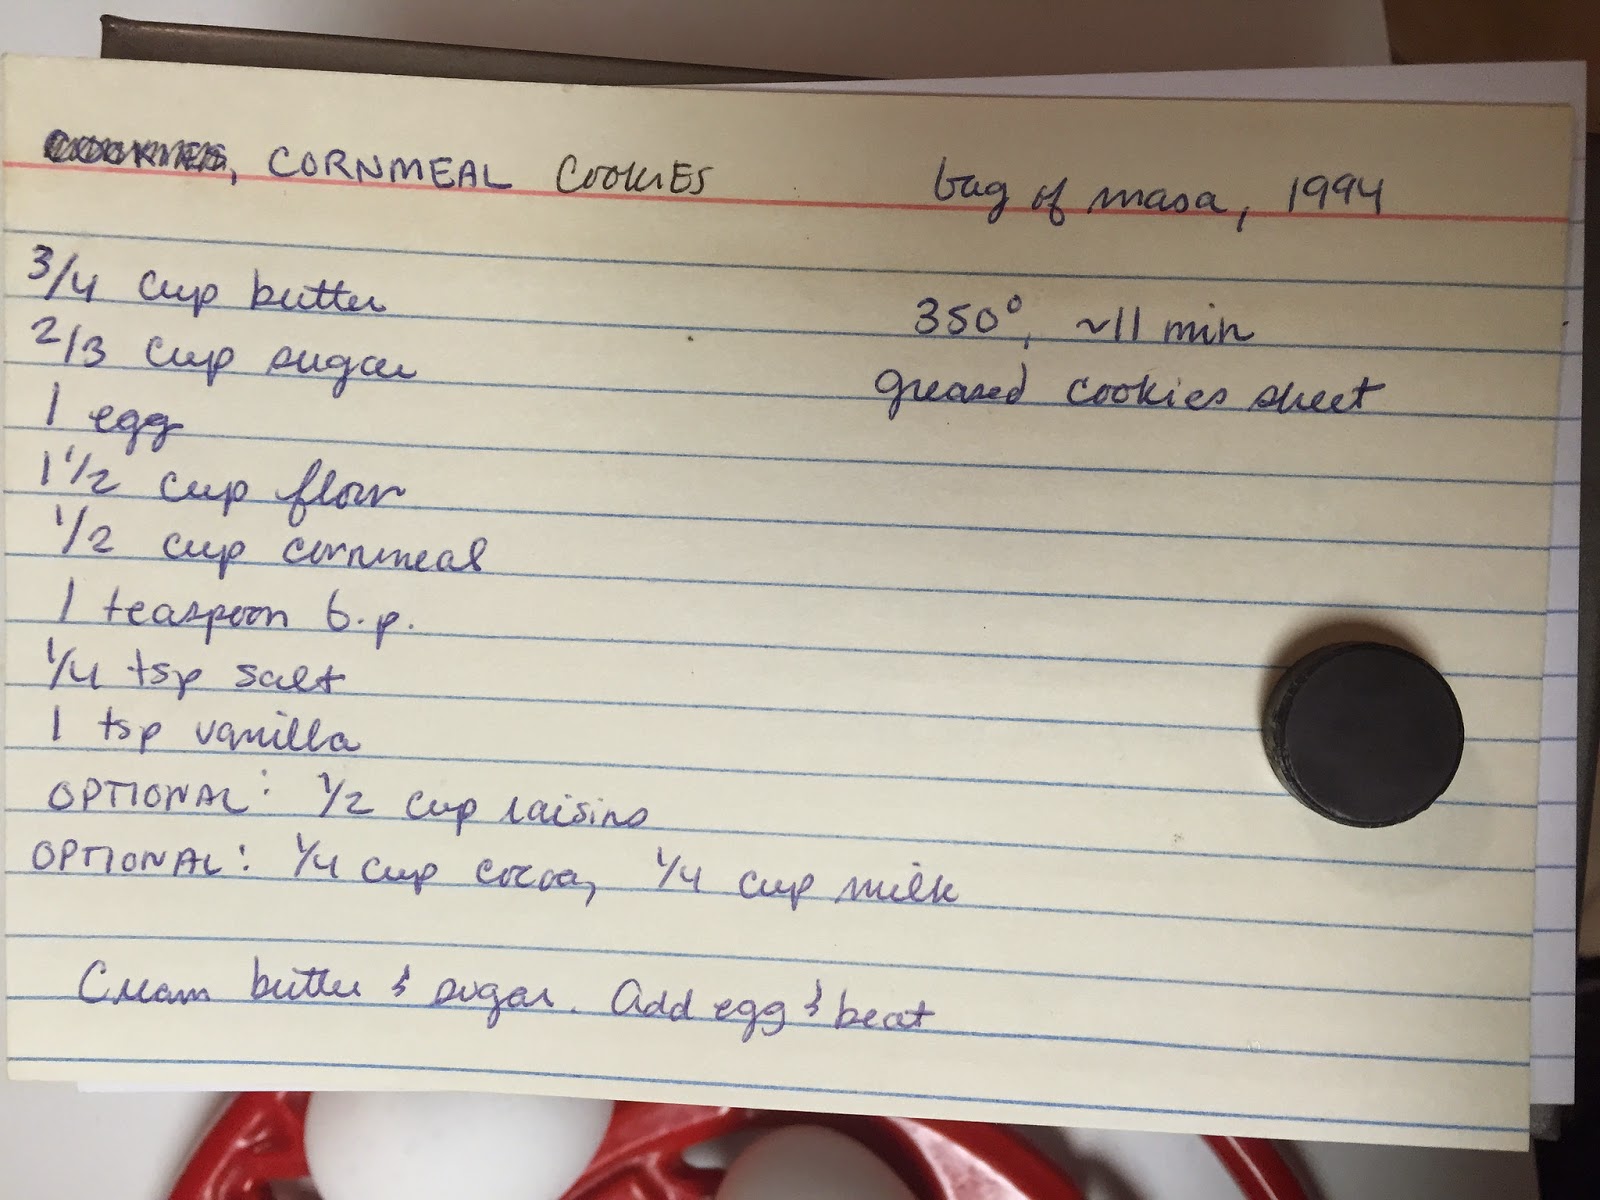 COOKIES, CORNMEAL COOKIES
bag of masa, 1994
3/4 cup butter
350°, ~11 min
2/3 cup sugar
greased cookies sheet
1 egg
1 1/2 cup flour
1/2 cup cornmeal
1 teaspoon b.p.
1/4 tsp salt
1 tsp vanilla
OPTIONAL: 1/2 cup raisins
OPTIONAL: 1/4 cup cocoa, 1/4 cup milk
Cream butter & sugar. Add egg & beat